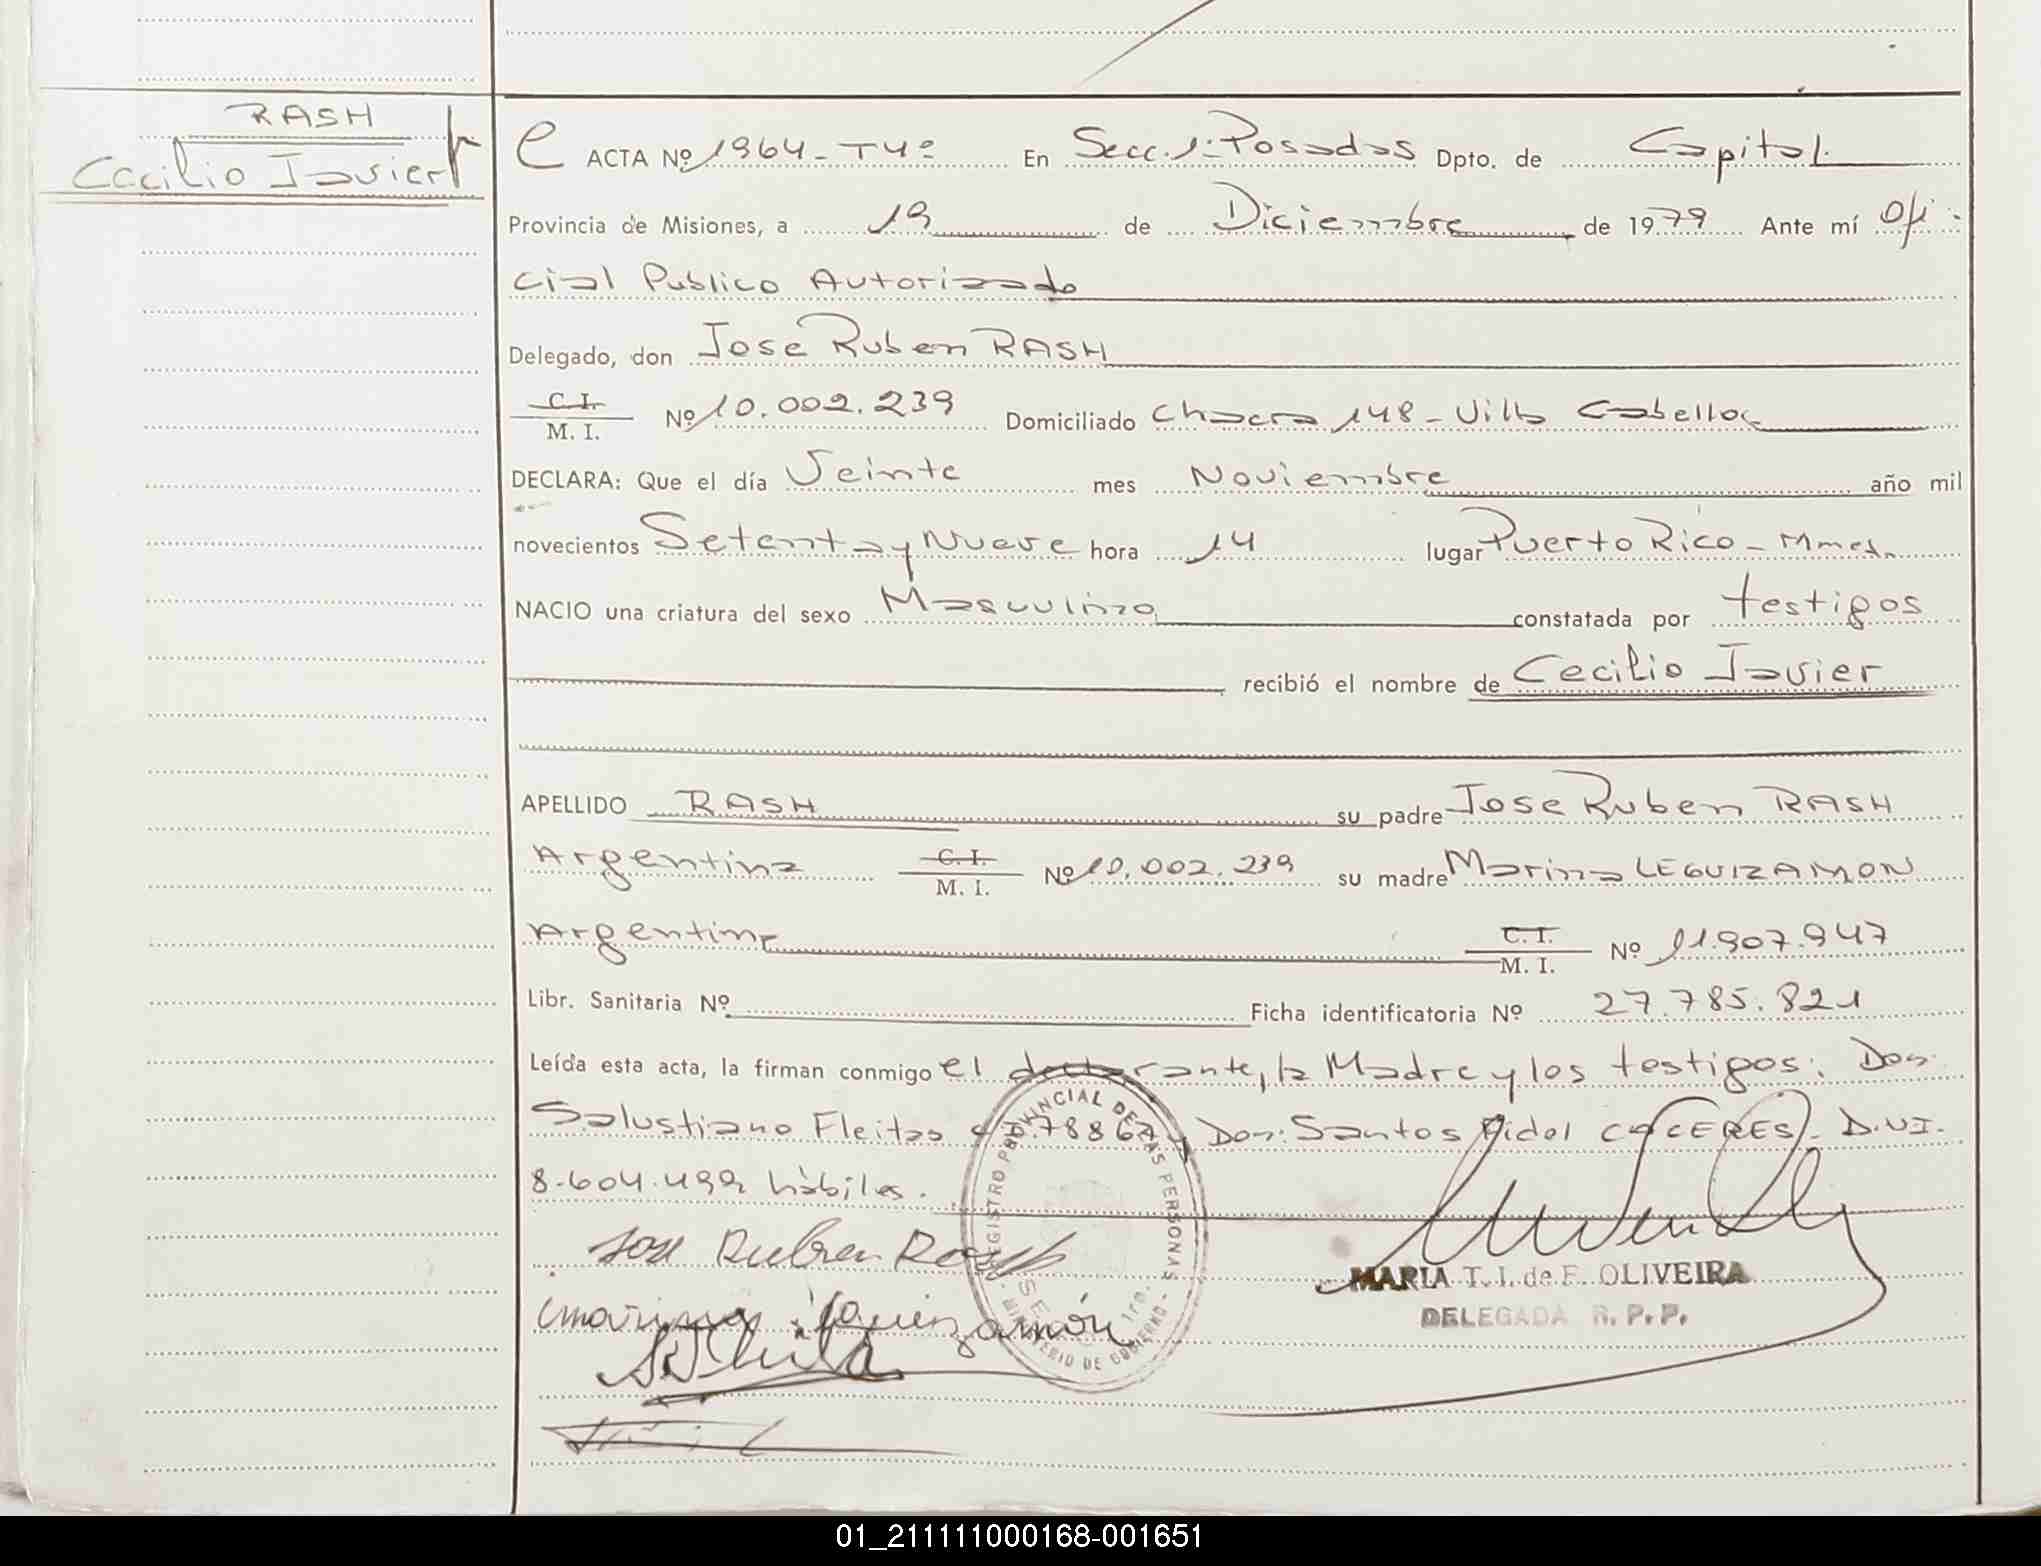 RASH
Cecilio Javier
ACTA Nº 1964 - Tº 4º En Secc. 1º Posadas Dpto. de Capital
Provincia de Misiones, a 19 de Diciembre de 1979 Ante mí Ofi-
cial Publico Autorizado
Delegado, don Jose Ruben RASH
C. I.
M. I. Nº 10.002.239 Domiciliado Chacra 148 - Villa Cabello
DECLARA: Que el día Veinte mes Noviembre año mil
novecientos Setenta y Nueve hora 14 lugar Puerto Rico -
NACIO una criatura del sexo Masculino constatada por testigos
recibió el nombre de Cecilio Javier
APELLIDO RASH su padre Jose Ruben RASH
Argentina C. I.
M. I. Nº 10.002.239 su madre Marina LEGUIZAMON
Argentina C. I.
M. I. Nº 11.907.947
Libr. Sanitaria Nº Ficha identificatoria Nº 27.785.821
Leída esta acta, la firman conmigo el declarante, la Madre y los testigos: Don
Salustiano Fleitas y Don: Santos Fidel CACERES - D.N.I.
8.604.499 hábiles.
Jose Ruben Rash
Marina Leguizamón
REGISTRO PROVINCIAL DE LAS PERSONAS
MINISTERIO DE GOBIERNO
MARIA T. I. de F. OLIVEIRA
DELEGADA R. P. P.
01_211111000168-001651